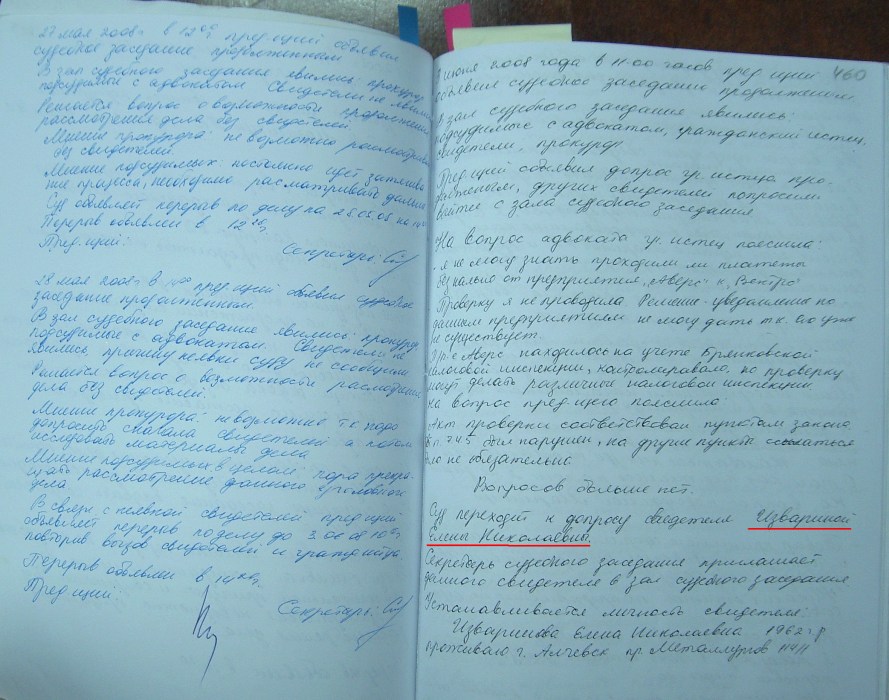 27 мая 2008г в 12⁰⁰ пред-ющий объявил
судебное заседание продолженным
В зал судебного заседания явились прокурор
подсудимые с адвокатом Свидетели не явились
Решается вопрос о возможности продолжения
рассмотрения дела без свидетелей
Мнение прокурора: не возможно рассматривать
без свидетелей
Мнение подсудимых: постоянно идет затягива-
ние процесса, необходимо рассматривать дальше
Суд объявляет перерыв по делу на 28.05.08 на
Перерыв объявлен в 12
Пред-ющий:
Секретарь:
28 мая 2008г в пред-ющий объявил судебное
заседание продолженным.
В зал судебного заседания явились: прокурор
подсудимые с адвокатом. Свидетели не
явились, причину неявки суду не сообщили
Решается вопрос о возможности рассмотрения
дела без свидетелей.
Мнение прокурора: невозможно т.к надо
допросить сначала свидетелей а потом
исследовать материалы дела
Мнение подсудимых в целом: пора прекра-
щать рассмотрение данного уголовного
дела
В связи с неявкой свидетелей пред-ющий
объявляет перерыв по делу до 3.06.08
повторив вызов свидетелей и гражданского
Перерыв объявлен в
Пред-ющий:
Секретарь:
460
июня 2008 года в 11-00 часов пред-ющий
объявил судебное заседание продолженным.
В зал судебного заседания явились:
подсудимые с адвокатом, гражданский истец,
свидетели, прокурор
Пред-ющий объявил допрос гр. истца про-
должением, других свидетелей попросил
выйти с зала судебного заседания
На вопрос адвоката гр. истец пояснила:
- я не могу знать проходили ли платежи
безнально от предприятия „Аверс" к
Проверку я не проводила Решение-уведомление по
данным предприятием не могу дать т.к. его уже
не существует.
Пр-е Аверс находилось на учете Брянковской
налоговой инспекции, контролировало, но проверку
могут делать различные налоговые инспекции
На вопрос пред-ющего пояснила:
Акт проверки соответствовал пунктам закона
был нарушен, на другие пункты ссылаться
было не обязательно
Вопросов больше нет.
Суд переходит к допросу свидетеля Извариной
Елены Николаевны.
Секретарь судебного заседания приглашает
данного свидетеля в зал судебного заседания
Устанавливается личность свидетеля:
Елена Николаевна 1962 г.р
проживаю г. Алчевск пр. Металлургов